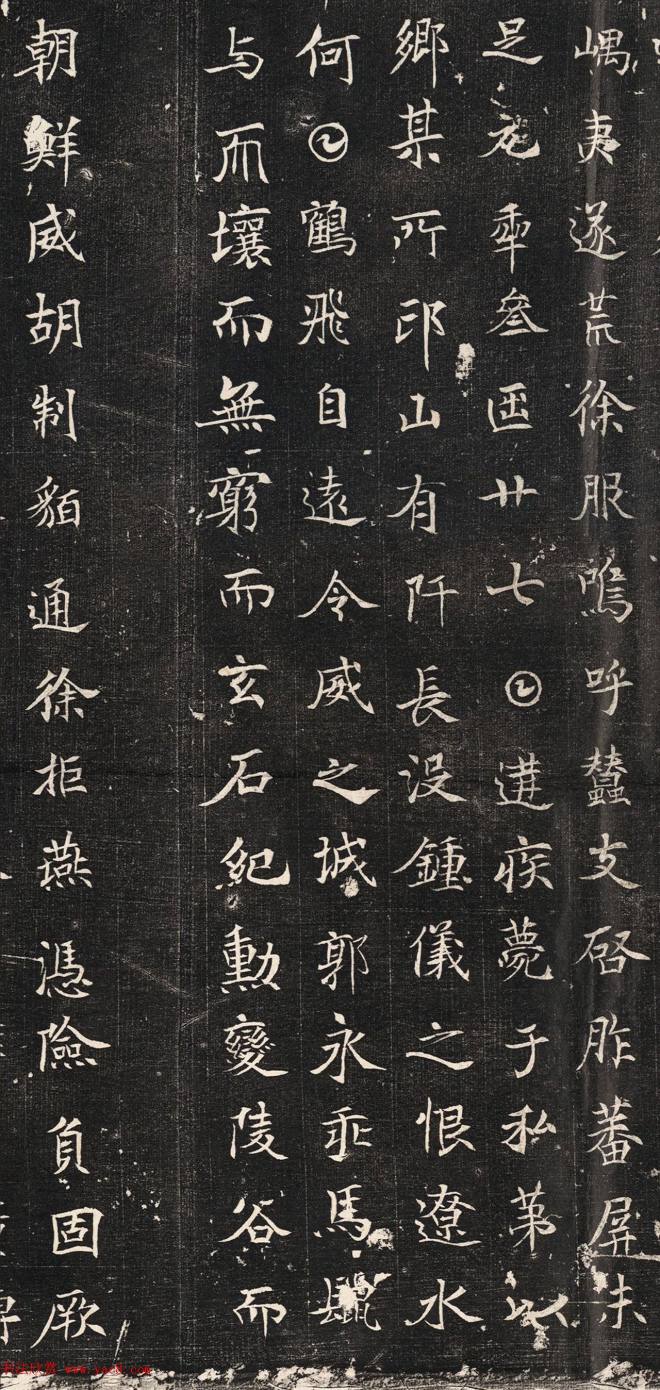 嵎夷遂荒徐服嗚呼蠢支啓胙蕃屏未
足元𠡦叁𠥱廿七𡆠遘疾薨于私第以
鄉某所邙山有阡長沒鍾儀之恨遼水
何𡆠鶴飛自遠令威之城郭永乖馬鬛
与而壤而無窮而玄石紀勳變陵谷而
朝鮮威胡制貊通徐拒燕憑險負固厥